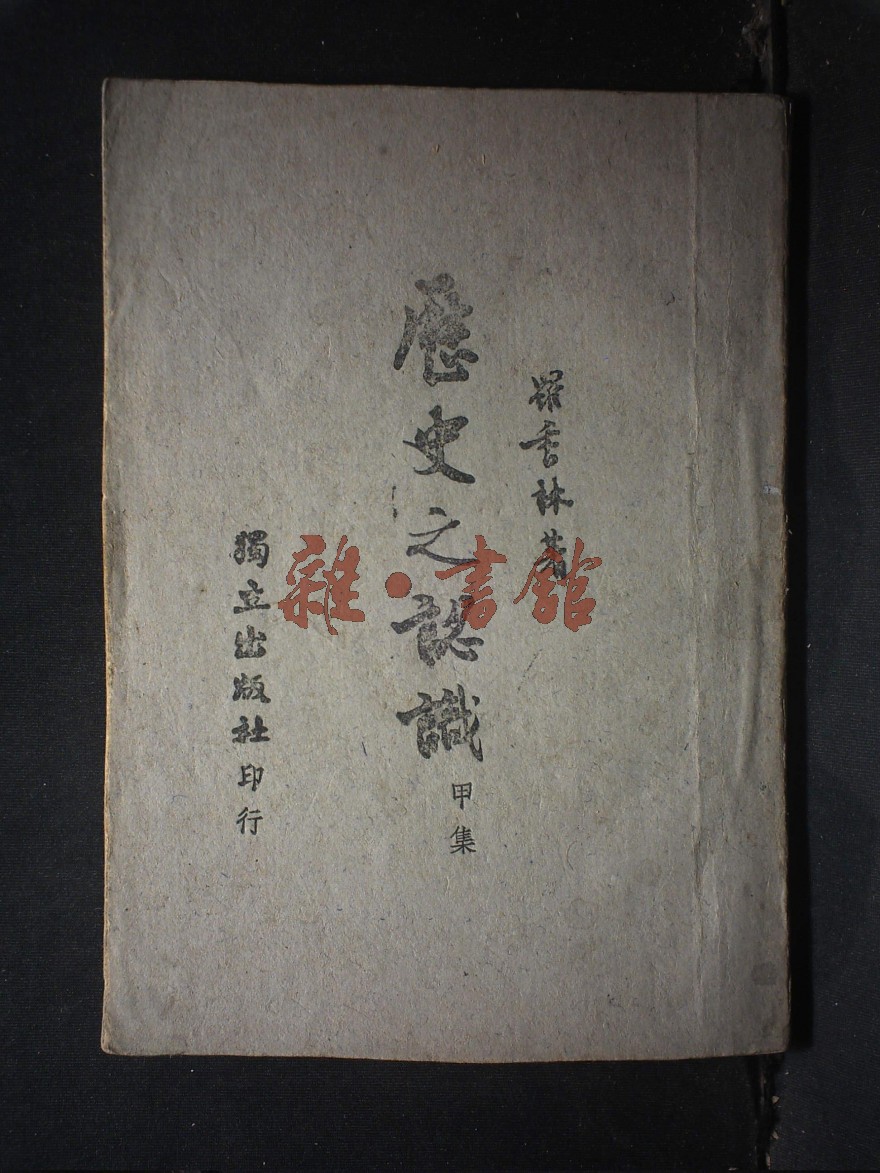 羅香林著
歷史之認識
甲集
獨立出版社印行
雜·書館